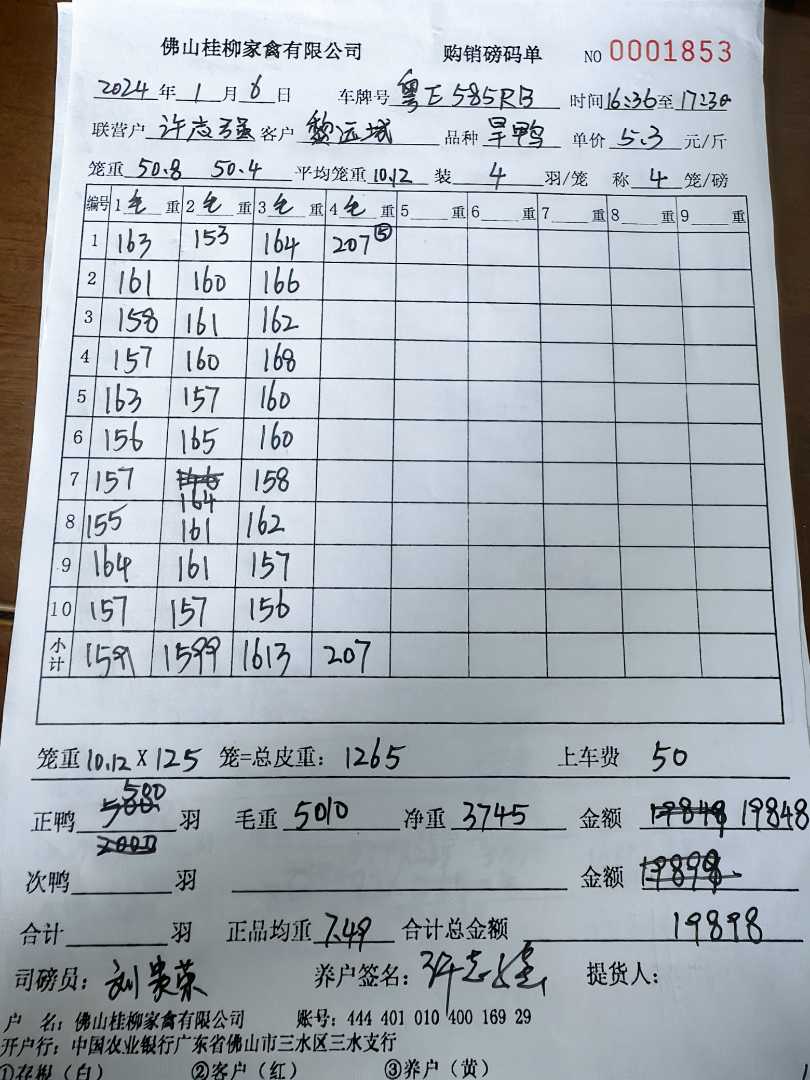 佛山桂柳家禽有限公司 购销磅码单 NO 0001853
2024 年 1 月 6 日 车牌号 粤E585RB 时间16:36至17:30
联营户 许志强 客户 黎运城 品种 旱鸭 单价 5.3 元/斤
笼重 50.8 50.4 平均笼重 10.12 装 4 羽/笼 称 4 笼/磅
编号 1 毛 重 2 毛 重 3 毛 重 4 毛 重 5 重 6 重 7 重 8 重 9 重
1 163 153 164 207⑤
2 161 160 166
3 158 161 162
4 157 160 168
5 163 157 160
6 156 165 160
7 157 164 158
8 155 161 162
9 164 161 157
10 157 157 156
小计 1591 1599 1613 207
笼重 10.12 X 125 笼=总皮重: 1265 上车费 50
正鸭 500 羽 毛重 5010 净重 3745 金额 19848 19848
2000
次鸭 羽 金额 19898
合计 羽 正品均重 7.49 合计总金额 19898
司磅员: 刘贵荣 养户签名: 许志强 提货人:
户 名: 佛山桂柳家禽有限公司 账号: 444 401 010 400 169 29
开户行: 中国农业银行广东省佛山市三水区三水支行
①存根（白） ②客户（红） ③养户（黄）